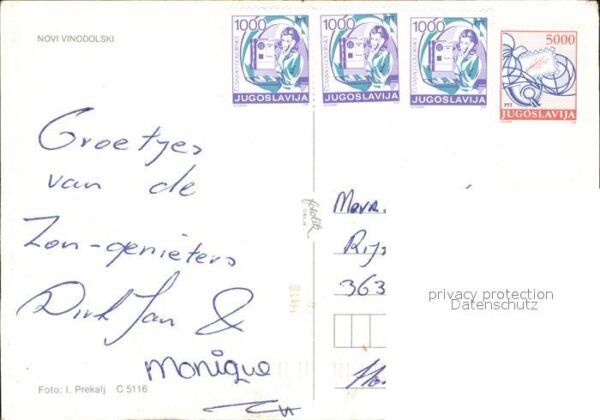 NOVI VINODOLSKI
1000
JUGOSLAVIJA
1000
JUGOSLAVIJA
1000
JUGOSLAVIJA
5000
PTT
JUGOSLAVIJA
Groetjes
van de
Zon-genieters
Dirk Jan &
Monique
Foto: I. Prekalj C 5116
fotolik
CELJE
Mevr.
363
privacy protection
Datenschutz